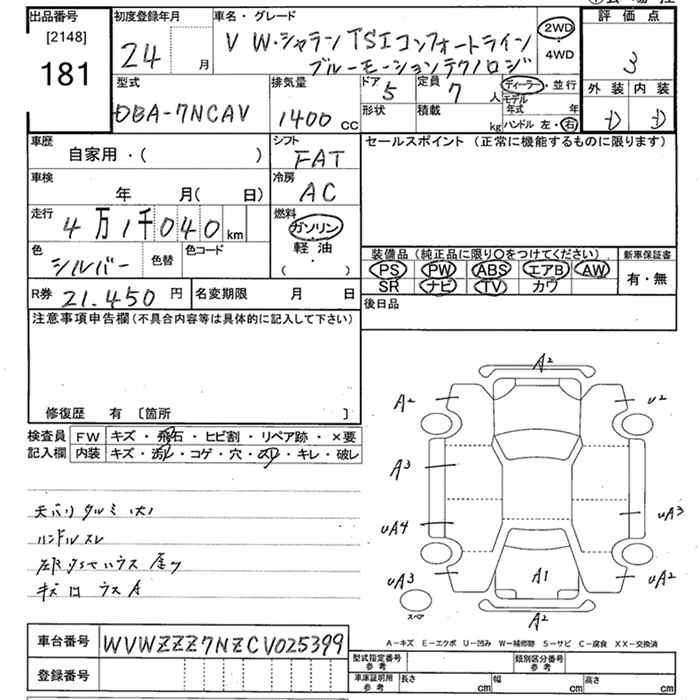 出品番号
[2148]
181
初度登録年月
24 月
車名・グレード
VW・シャラン TSIコンフォートライン
ブルーモーションテクノロジ
2WD
4WD
評価点
3
外装 内装
D D
型式
DBA-7NCAV
排気量
1400 CC
ドア 5
形状
定員 7 人
積載 kg
ディーラー・並行
モデル年式 年
ハンドル 左・右
車歴
自家用・( )
シフト
FAT
車検
年 月( 日)
冷房
AC
走行
4万1千040km
燃料
ガソリン
軽油
( ・ )
色
シルバー
色替
色コード
R券 21.450円
名変期限 月 日
セールスポイント(正常に機能するものに限ります)
装備品(純正品に限り○をつけてください)
PS PW ABS エアB AW
SR ナビ TV カワ
新車保証書
有・無
後日品
注意事項申告欄(不具合内容等は具体的に記入して下さい)
修復歴 有 [箇所 ]
検査員
記入欄
FW キズ・飛石・ヒビ割・リペア跡・×要
内装 キズ・汚れ・コゲ・穴・スレ・キレ・破レ
天バリタルミ(大)
ハンドルスレ
A2
A2
U2
A3
UA3
UA4
UA3
A1
UA2
A2
スペア
A-キズ E-エクボ U-凹み W-補修跡 S-サビ C-腐食 XX-交換済
車台番号 WVWZZZ7NZCV025399
登録番号
型式指定番号
参考
類別区分番号
参考
車庫証明用
参考
長さ cm 幅 cm 高さ cm